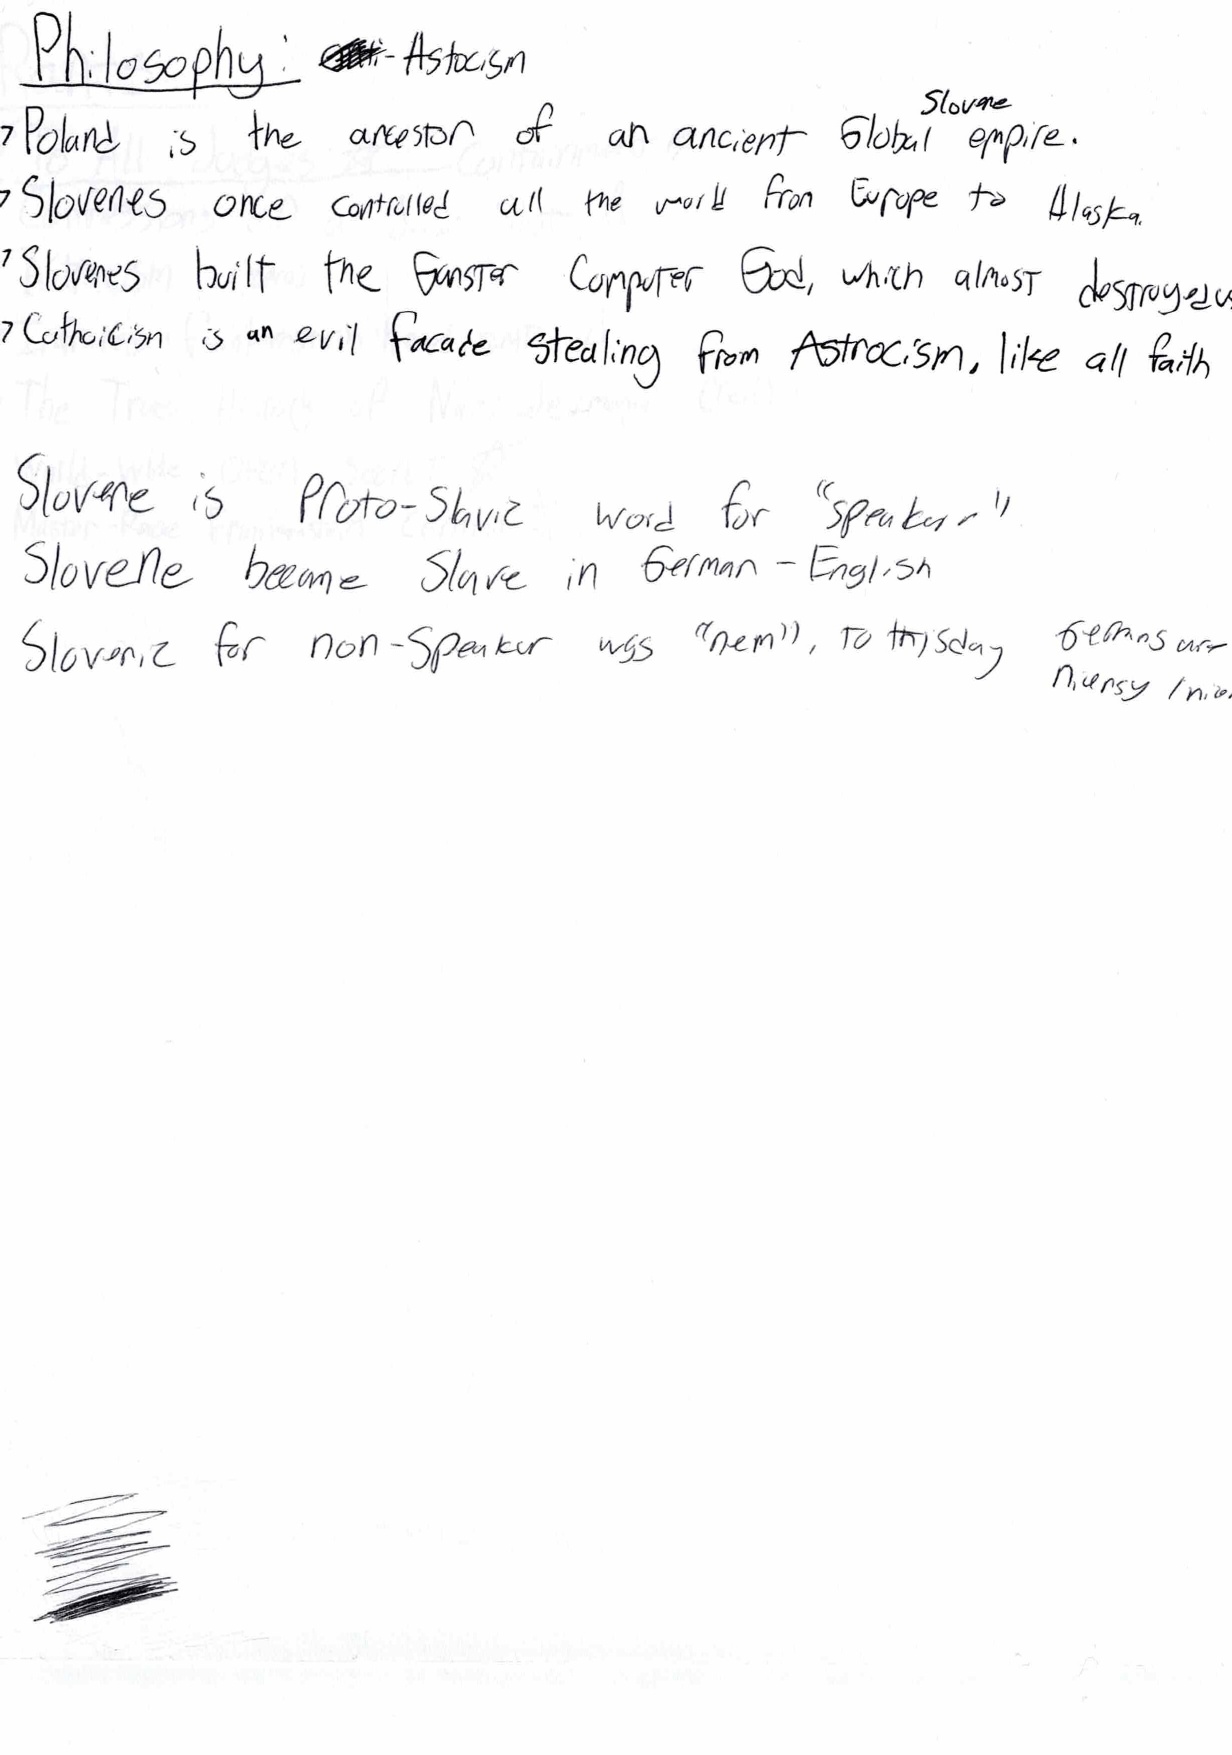 Philosophy: - Astocism
Slovene
Poland is the ancestor of an ancient Global empire.
Slovenes once controlled all the world from Europe to Alaska.
Slovenes built the Ganster Computer God, which almost destroyed us
Cathoicism is an evil facade stealing from Astrocism, like all faith
Slovene is Proto-Slavic word for "speaker"
Slovene became Slave in German - English
Slovenic for non-Speaker was "nem", to this day Germans are